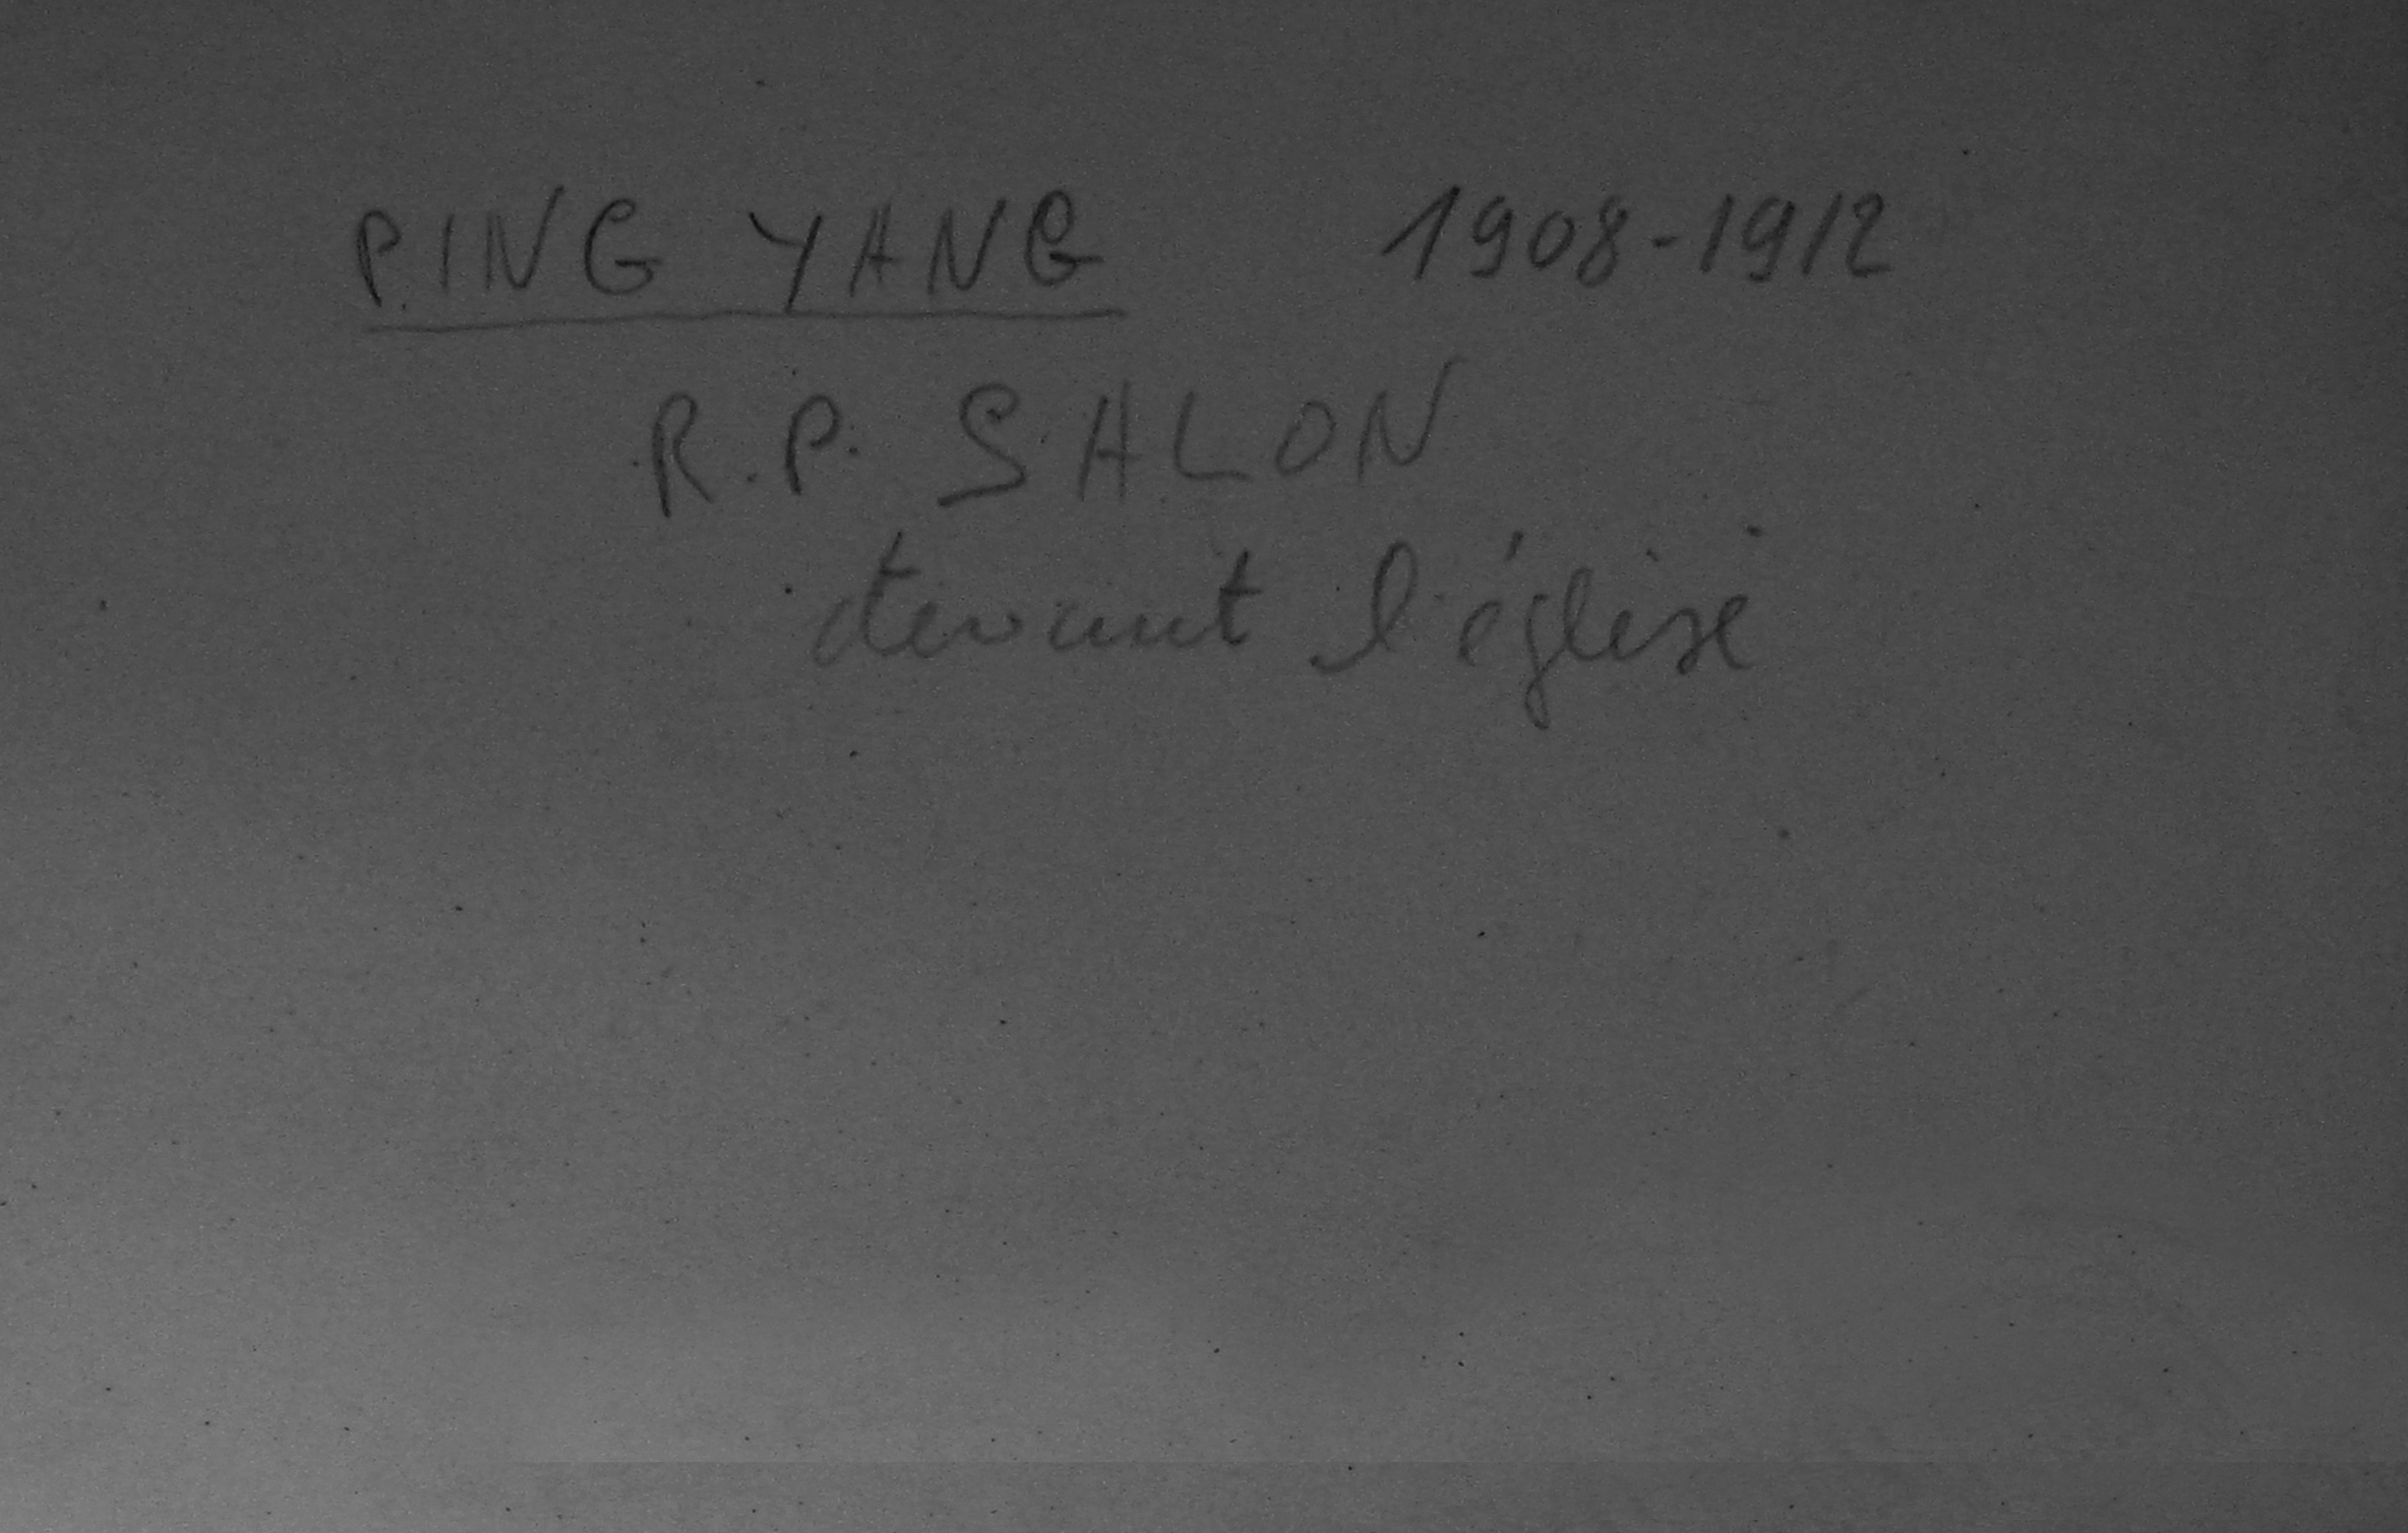 PING YANG 1908-1912
R.P. SALON
devant l'église